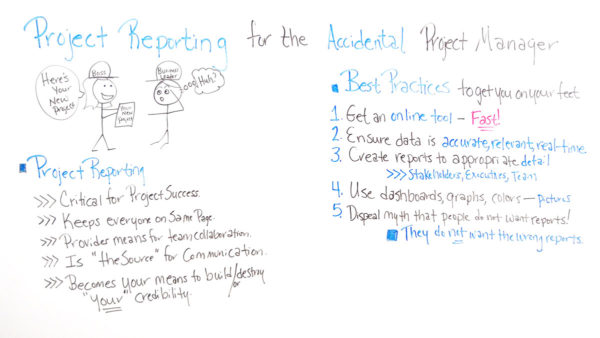 Project Reporting for the Accidental Project Manager
Here's
Your
New
Project
Boss
Your
New
Project
Business
Leader
Huh?
Project Reporting
>>> Critical for Project Success.
>>> Keeps everyone on Same Page
>>> Provides means for team collaboration.
>>> Is "the Source" for Communication.
>>> Becomes your means to build/destroy
or
"your" credibility.
Best Practices to get you on your feet
1. Get an online tool – Fast!
2. Ensure data is accurate, relevant, real-time.
3. Create reports to appropriate detail
>>> Stakeholders, Executives, Team
4. Use dashboards, graphs, colors – pictures
5. Dispeal myth that people do not want reports!
They do not want the wrong reports.